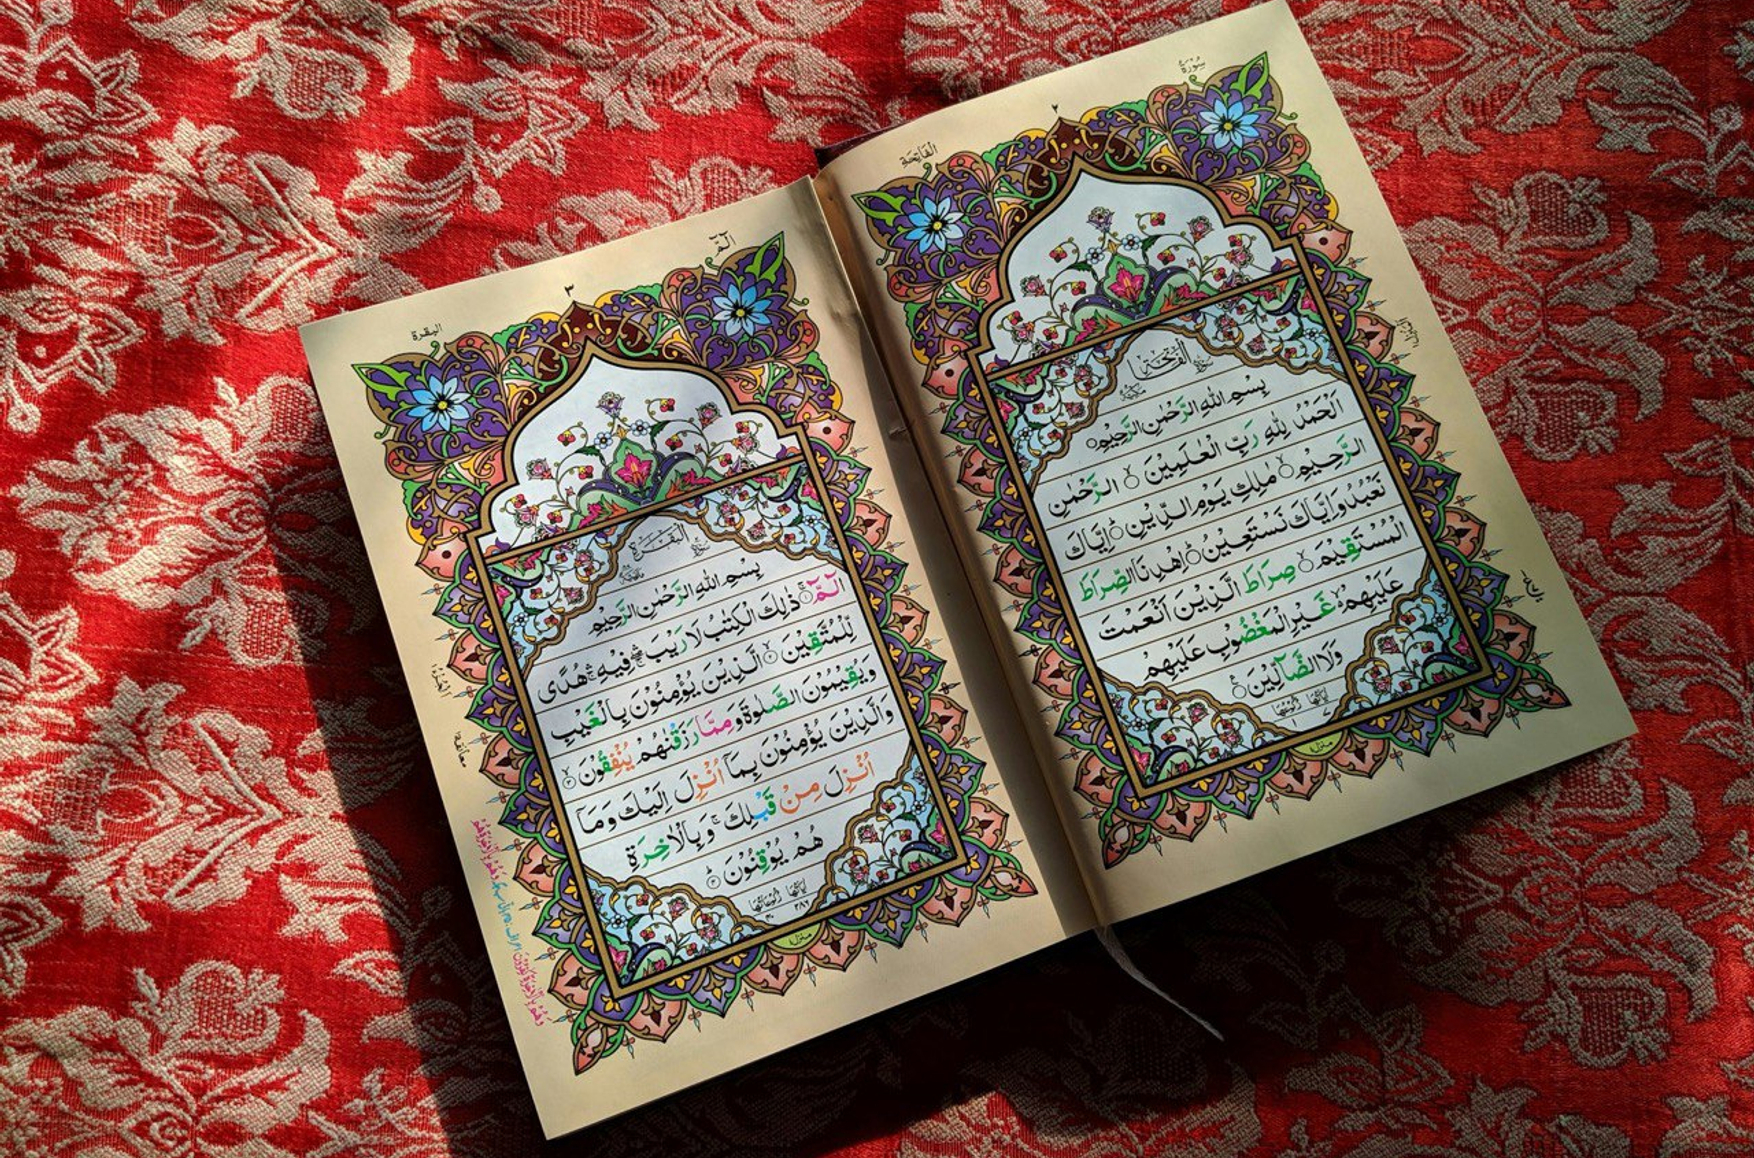 سُوْرَةُ
٢
الْفَاتِحَةِ
سُوْرَةُ الْفَاتِحَةِ مَكِّيَّةٌ
بِسْمِ اللّٰهِ الرَّحْمٰنِ الرَّحِيْمِ
اَلْحَمْدُ لِلّٰهِ رَبِّ الْعٰلَمِيْنَ ۙ الرَّحْمٰنِ
الرَّحِيْمِ ۙ مٰلِكِ يَوْمِ الدِّيْنِ ؕ اِيَّاكَ
نَعْبُدُ وَاِيَّاكَ نَسْتَعِيْنُ ؕ اِهْدِنَا الصِّرَاطَ
الْمُسْتَقِيْمَ ۙ صِرَاطَ الَّذِيْنَ اَنْعَمْتَ
عَلَيْهِمْ ۙ غَيْرِ الْمَغْضُوْبِ عَلَيْهِمْ
وَلَا الضَّآلِّيْنَ
اٰيَاتُهَا ٧ رُكُوْعُهَا ١
منزل ١
الٓمّٓ
٣
الْبَقَرَة
سُوْرَةُ الْبَقَرَةِ
بِسْمِ اللّٰهِ الرَّحْمٰنِ الرَّحِيْمِ
الٓمّٓ ۚ ذٰلِكَ الْكِتٰبُ لَا رَيْبَ ۛ فِيْهِ ۛ هُدًى
لِّلْمُتَّقِيْنَ ۙ الَّذِيْنَ يُؤْمِنُوْنَ بِالْغَيْبِ
وَيُقِيْمُوْنَ الصَّلٰوةَ وَمِمَّا رَزَقْنٰهُمْ يُنْفِقُوْنَ ۙ
وَالَّذِيْنَ يُؤْمِنُوْنَ بِمَآ اُنْزِلَ اِلَيْكَ وَمَآ
اُنْزِلَ مِنْ قَبْلِكَ ۚ وَبِالْاٰخِرَةِ
هُمْ يُوْقِنُوْنَ ؕ
اٰيَاتُهَا ٢٨٦ رُكُوْعَاتُهَا ٤٠
منزل ١